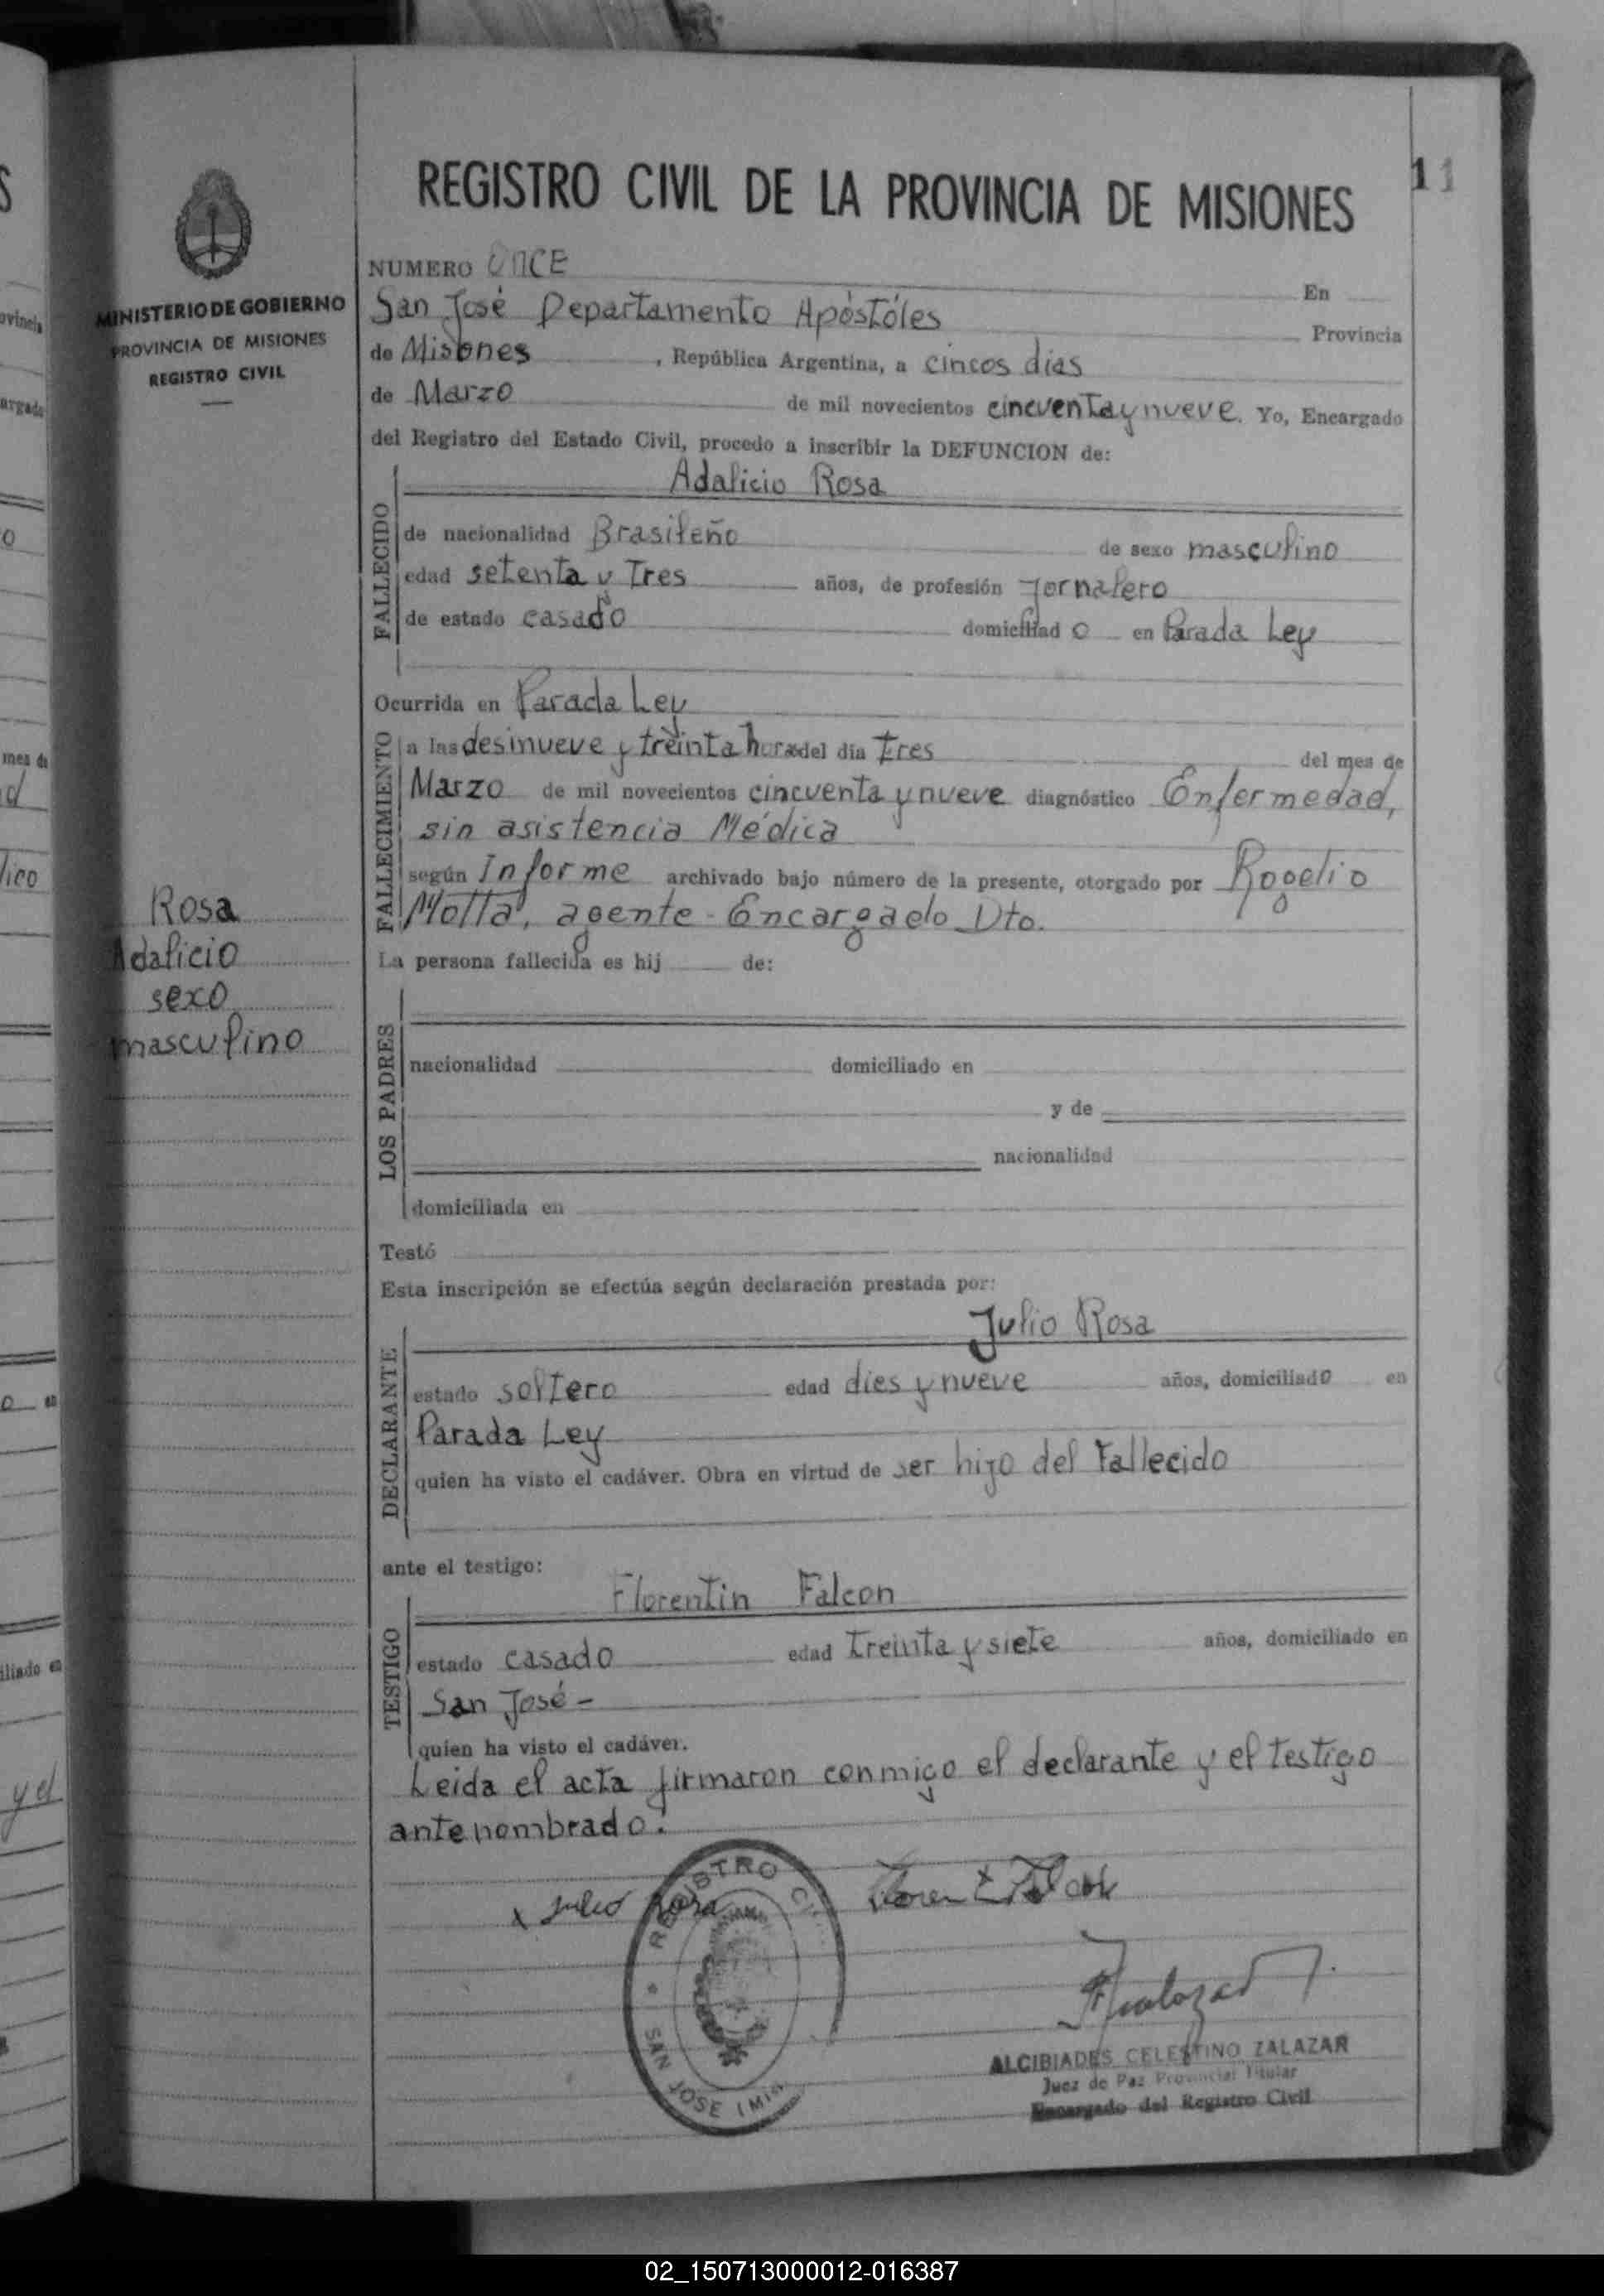 REGISTRO CIVIL DE LA PROVINCIA DE MISIONES
11
MINISTERIO DE GOBIERNO
PROVINCIA DE MISIONES
REGISTRO CIVIL
Rosa
Adalicio
sexo
masculino
NUMERO ONCE En
San José Departamento Apóstóles Provincia
de Misones , República Argentina, a cincos dias
de Marzo de mil novecientos cincuenta y nueve. Yo, Encargado
del Registro del Estado Civil, procedo a inscribir la DEFUNCION de:
Adalicio Rosa
FALLECIDO
de nacionalidad Brasileño de sexo masculino
edad setenta y Tres años, de profesión Jornalero
de estado casado domiciliad o en Parada Ley
Ocurrida en Parada Ley
FALLECIMIENTO
a las desinueve y treinta horas del día tres del mes de
Marzo de mil novecientos cincuenta y nueve diagnóstico Enfermedad,
sin asistencia Médica
según Informe archivado bajo número de la presente, otorgado por Rogelio
Motta, agente - Encargado Dto.
La persona fallecida es hij de:
LOS PADRES
nacionalidad domiciliado en
y de
nacionalidad
domiciliada en
Testó
Esta inscripción se efectúa según declaración prestada por:
Julio Rosa
DECLARANTE
estado soltero edad dies y nueve años, domiciliado en
Parada Ley
quien ha visto el cadáver. Obra en virtud de ser hijo del Fallecido
ante el testigo:
Florentin Falcon
TESTIGO
estado casado edad treinta y siete años, domiciliado en
San José -
quien ha visto el cadáver.
Leida el acta firmaron conmigo el declarante y el testigo
antenombrado.
x Julio Rosa Floren t Falcon
REGISTRO CIVIL
SAN JOSE (Mis.
ALCIBIADES CELESTINO ZALAZAR
Juez de Paz Provincial Titular
Encargado del Registro Civil
02_150713000012-016387